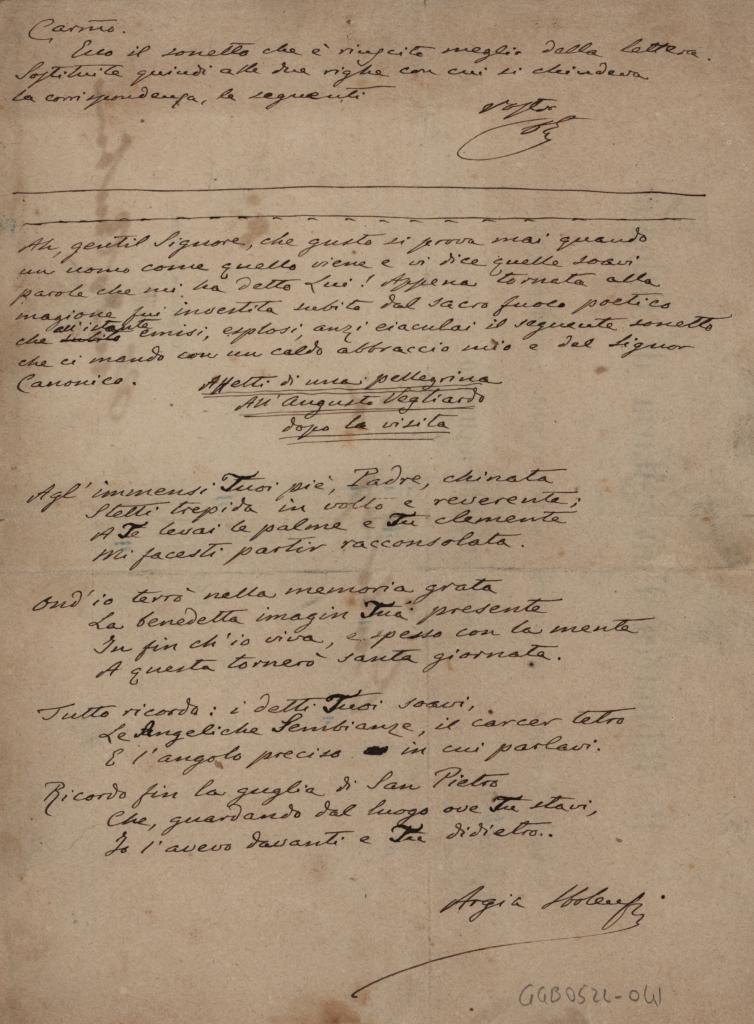 Carmo.
Ecco il sonetto che è riuscito meglio della lettera.
Sostituite quindi alle due righe con cui si chiudeva
la corrispondenza, le seguenti
Vostro
Ah, gentil Signore, che gusto si prova mai quando
un uomo come quello viene e vi dice quelle soavi
parole che mi ha detto Lui! Appena tornata alla
magione fui investita subito dal sacro fuoco poetico
che subito all'istante emisi, esplosi, anzi eiaculai il seguente sonetto
che ci mando con un caldo abbraccio mio e del Signor
Canonico.
Affetti di una pellegrina
All'Augusto Vegliardo
dopo la visita
Agl'immensi Tuoi piè, Padre, chinata
Stetti trepida in volto e reverente;
A Te levai le palme e Tu clemente
Mi facesti partir racconsolata.
Ond'io terrò nella memoria grata
La benedetta imagin Tua presente
In fin ch'io viva, e spesso con la mente
A questa tornerò santa giornata.
Tutto ricordo: i detti Tuoi soavi,
Le Angeliche Sembianze, il carcer tetro
E l'angolo preciso in cui parlavi.
Ricordo fin la guglia di San Pietro
Che, guardando dal luogo ove Tu stavi,
Io l'avevo davanti e Tu didietro..
Argia Sbolenfi
GGB0522-04